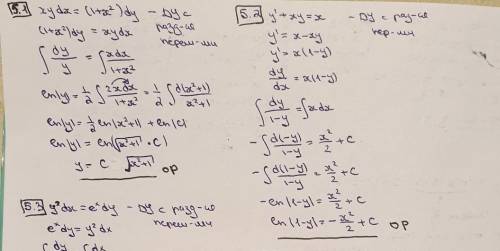 5.1 xydx = (1+x²)dy - ДУ с
(1+x²)dy = xydx разд-ся
перем-ми
∫ dy/y = ∫ xdx/1+x²
ln|y| = 1/2 ∫ 2xdx/1+x² = 1/2 ∫ d(x²+1)/x²+1
ln|y| = 1/2 ln|x²+1| + ln|C|
ln|y| = ln|√x²+1 · C|
y = C √x²+1 ОР
5.3 y²dx = eˣdy - ДУ с разд-ся
eˣdy = y²dx перем-ми
∫ dy ∫ dx
5.2 y' + xy = x - ДУ с раз-ся
y' = x-xy пер-ми
y' = x(1-y)
dy/dx = x(1-y)
∫ dy/1-y = ∫ xdx
-∫ d(1-y)/1-y = x²/2 + C
-∫ d(1-y)/1-y = x²/2 + C
-ln|1-y| = x²/2 + C
ln|1-y| = -x²/2 + C ОР